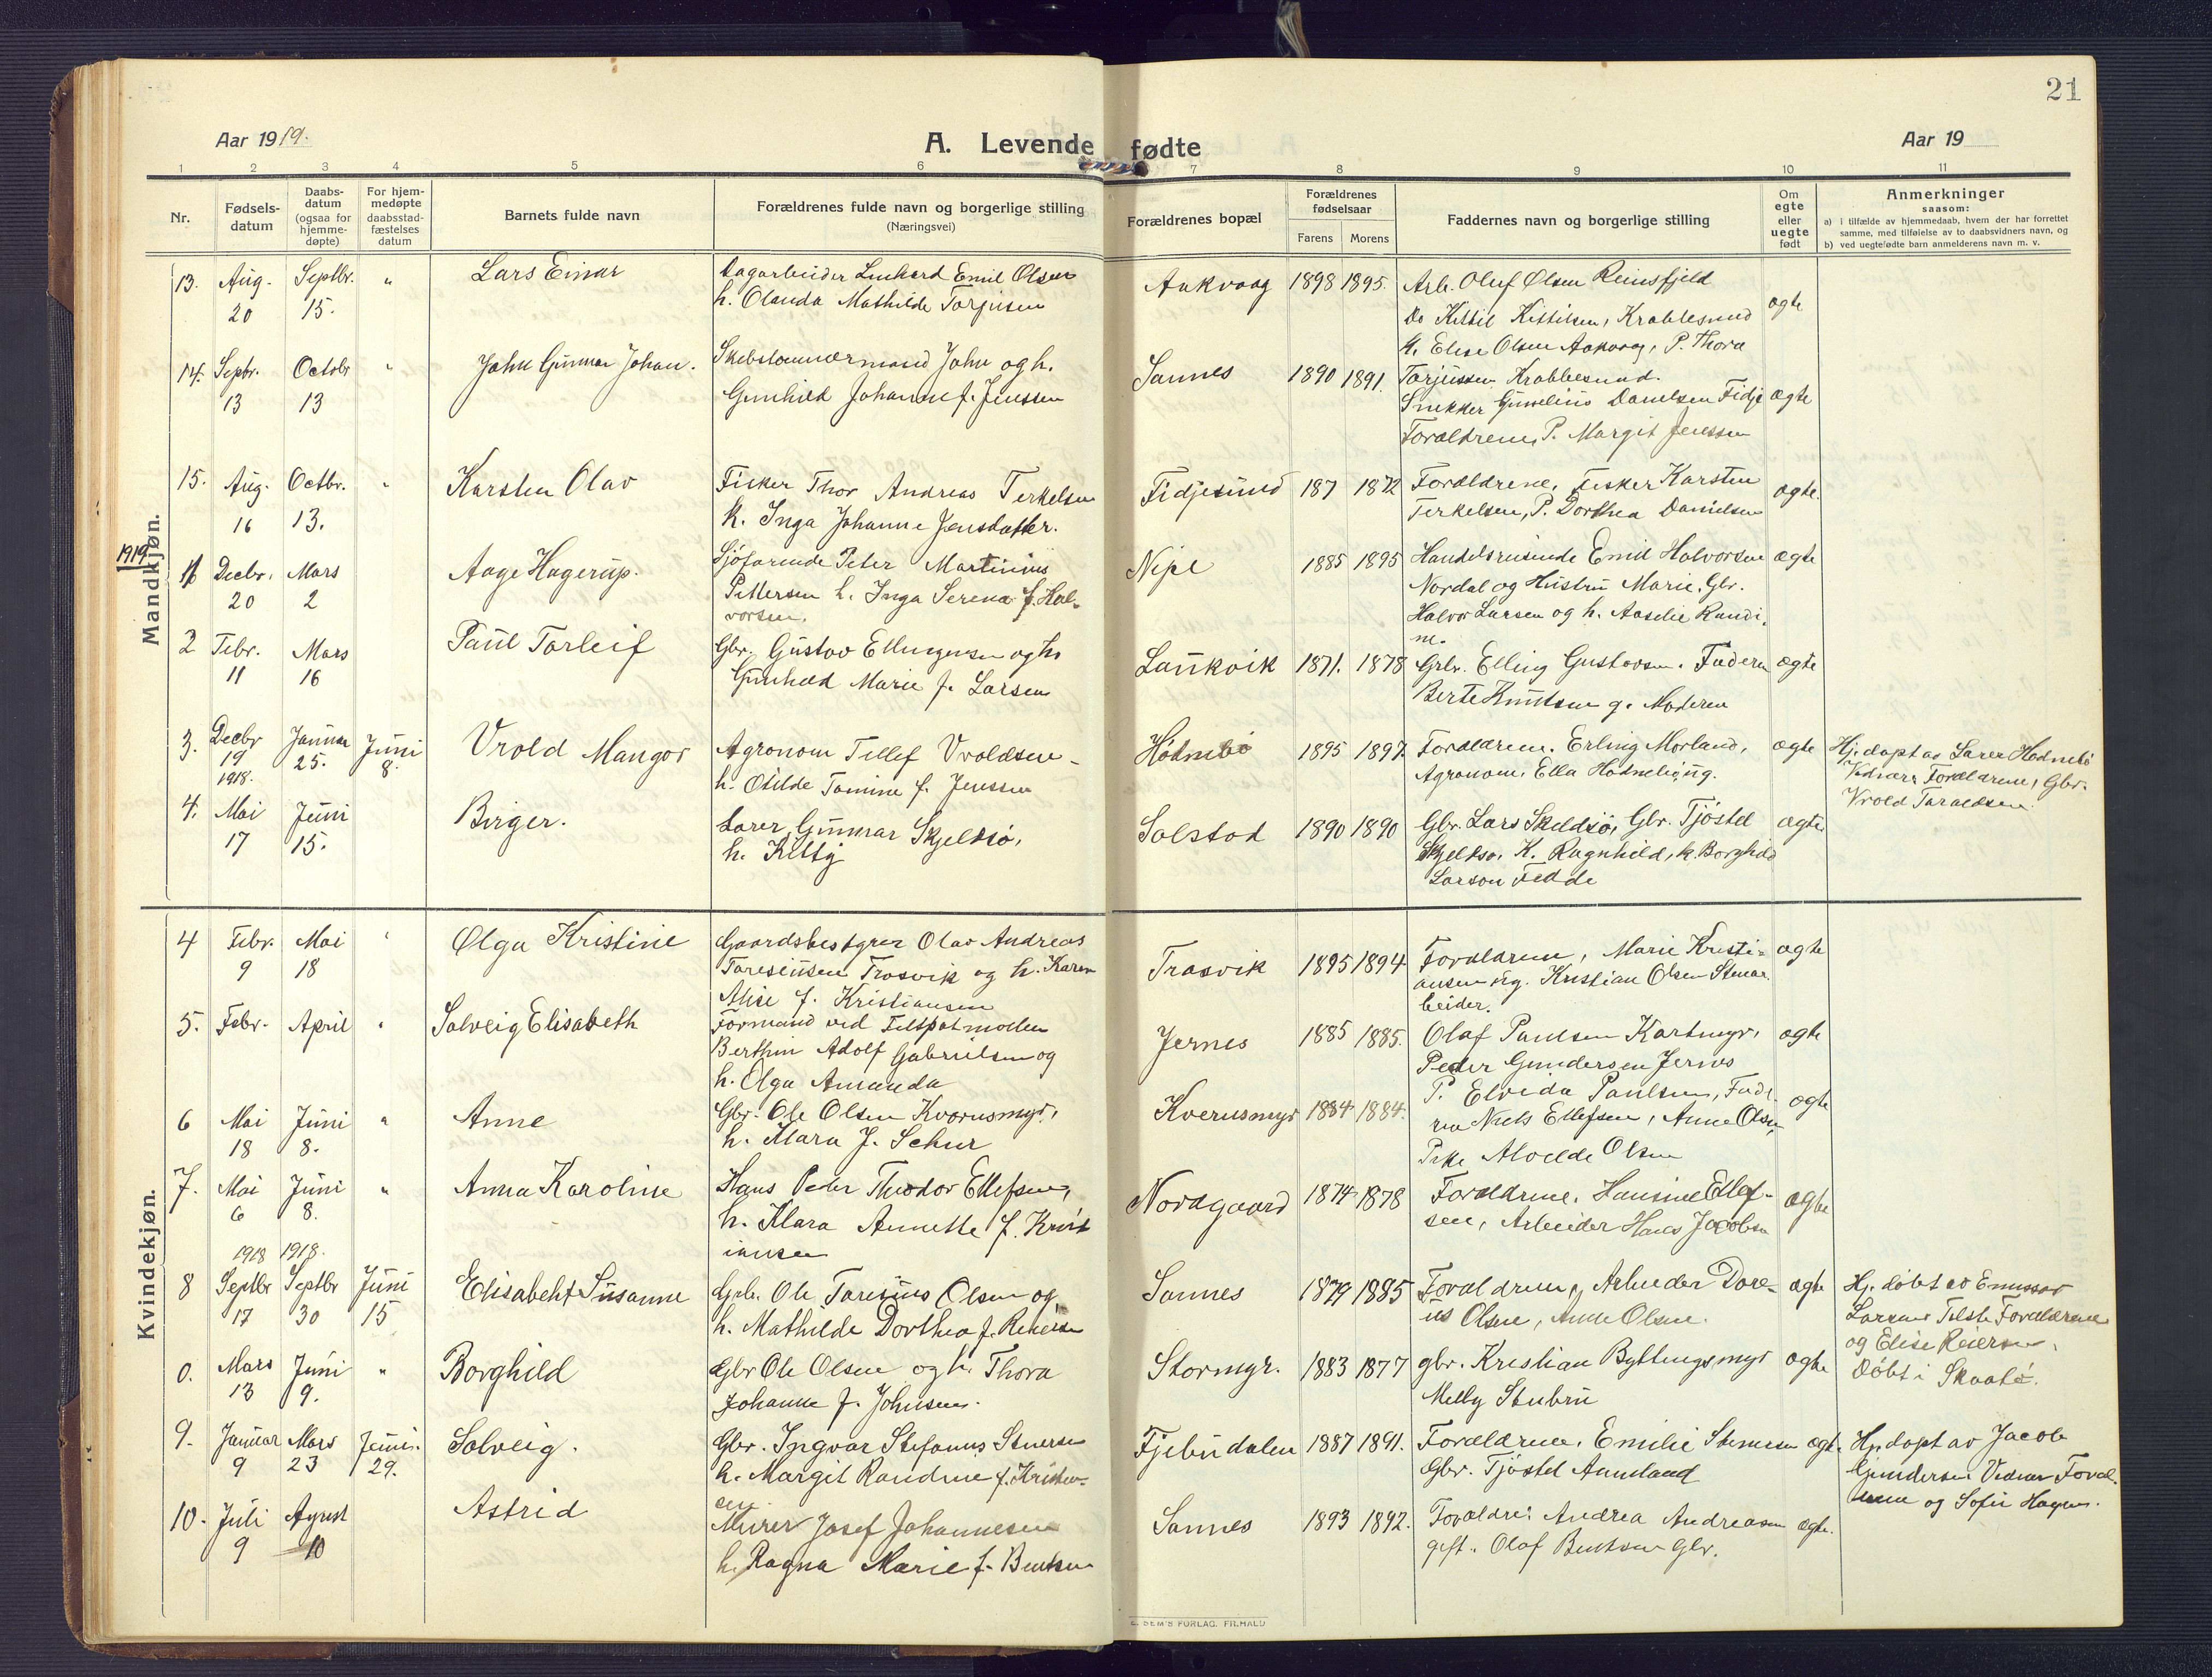 21
Aar 1919.
A. Levende fødte
Aar 19
1 2 3 4 5 6 7 8 9 10 11
Nr.
Fødsels-
datum
Daabs-
datum
(ogsaa for
hjemme-
døpte)
For hjem-
medøpte
daabsstad-
fæstelses
datum
Barnets fulde navn
Forældrenes fulde navn og borgerlige stilling
(Næringsvei)
Forældrenes bopæl
Forældrenes
fødselsaar
Farens Morens
Faddernes navn og borgerlige stilling
Om
egte
eller
uegte
født
Anmerkninger
saasom:
a) i tilfælde av hjemmedaab, hvem der har forrettet
samme, med tilføielse av to daabsvidners navn, og
b) ved uegtefødte barn anmelderens navn m. v.
Mandkjøn.
13. Aug. 20 Septbr. 15. "
Lars Einar
Dagarbeider Emil Olsen
h. Olanda Mathilde Torjusen
Aakvaag 1898 1895.
Arb. Oluf Olsen Reinsfjeld
Do Kittil Kittilsen, Krabbesund
K. Elise Olsen Aakvaag, P. Thora
Torjussen Krabbesund.
ægte
14. Septbr. 13 Octobr 13 "
John Gunnar Johan.
Skibstømmermand John og h.
Gunhild Johanne f. Jenssen
Sannes 1890 1891.
Snekker Danielsen Fidje
Forældrene, P. Margit Jenssen
ægte
15. Aug. 16 Octbr. 13. "
Karsten Olav
Fisker Thor Andreas Terkelsen
k. Inga Johanne Jensdatter.
Fidjesund 187 1872
Forældrene, Fisker Karsten
Terkelsen, P. Dorthea Danielsen
ægte.
1919
1 Decbr. 20 Mars 2
Aage Hagerup.
Sjöfarende Peter Martinius
Pettersen h. Inga Serena f. Hal-
vorsen.
Nipe 1885 1895
Handelsreisende Emil Halvorsen
Nordal og Hustru Marie. Gbr.
Halvor Larsen og h. Aaselie Randi-
ne.
ægte
2 Febr. 11 Mars 16
Paul Torleif
Gbr. Gustav Ellingsen og h.
Gunhild Marie f. Larsen
Laukvik 1871. 1878
Gbr. Elling Gustavsen. Faderen
Berte Knutsen g. Moderen
ægte
3. Decbr 19 1918. Januar 25. Juni 8.
Vrold Mangor
Agronom Tellef Vroldsen -
h. Otilde Tomine f. Jenssen
Hödnebö 1895 1897.
Forældrene. Erling Morland,
Agronom. Ella Hödnebö ug.
ægte
Hj. døpt av Lærer Hødnebö
Vidner: Forældrene, Gbr.
Vrold Taraldsen.
4. Mai 17 Juni 15.
Birger.
Lærer Gunnar Skjelsö,
h. Kitty
Solstad 1890 1890
Gbr. Lars Skjelsö, Gbr. Tjöstel
Skjelsö, K. Ragnhild, k. Borghild
Larson Vedde
ægte
Kvindekjøn.
4 Febr. 9 Mai 18 "
Olga Kristine
Gaardsbestyrer Olav Andreas
Taresiusen Trosvik og h. Karen
Alise f. Kristiansen
Trosvik 1895 1894
Forældrene, Marie Kristi-
ansen ug. Kristian Olsen Stenar-
beider.
ægte
5. Febr. April "
Solveig Elisabeth
Formand ved Feltspatmøllen
Berthin Adolf Gabrielsen og
h. Olga Amanda
Jernes 1885 1885.
Olaf Paulsen Kartmyr,
Peder Gundersen Jernes
P. Elvida Paulsen,
ægte
6 Mai 18 Juni 8. "
Anne
Gbr. Ole Olsen Kverusmyr,
h. Klara f. Schur
Kverusmyr 1884 1884.
Niels Ellefsen, Anne Olsen,
Pike Alvilde Olsen
ægte
7. Mai 6 Juni 8. "
Anna Karoline
Hans Peder Theodor Ellefsen,
h. Klara Annette f. Krist
iansen
Nordgaard 1874 1878
Forældrene. Hansine Ellef-
sen, Arbeider Hans Jacobsen
ægte
8 1918 Septbr 17 1918. Septbr 30 Juni 15
Elisabeht Susanne
Gbr. Ole Taresius Olsen og
h. Mathilde Dorthea f. Reiersen
Sannes 1879 1885
Forældrene, Arbeider Dore-
us Olsen, Anne Olsen.
ægte
Hj. døbt av Emissær
Larsen Tilste Forældrene
og Elise Reiersen.
Døbt i Skaatö.
0. Mars 13 Juni 9. "
Borghild
Gbr Ole Olsen og h. Thora
Johanne f. Johnsen.
Stormyr. 1883 1877
gbr. Kristian Byttingsmyr
Melly Stubru
ægte
9. Januar 9 Mars 23 Juni. 29.
Solveig.
Gbr. Ingvar Stefanus Stenersen
h. Margit Randine f. Kristen-
sen.
Fjebudalen 1887 1891.
Forældrene. Emilie Stenersen
Gbr. Tjöstel Aamland
ægte.
Hj. døpt av Jacob
Gundersen Vidner Foræl-
drene og Sofie Hagen.
10. Juli 9 August 10
Astrid
Murer Josef Johannesen
h. Ragna Marie f. Bentsen
Sannes 1893 1892.
Forældre: Andrea Andreasen
gift. Olaf Bentsen Gbr.
ægte.
E. SEM'S FORLAG. FR.HALD